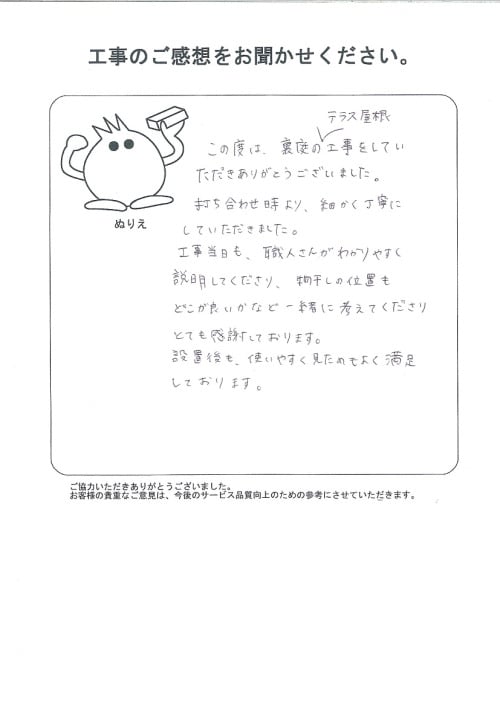 工事のご感想をお聞かせください。
テラス屋根
この度は、裏庭の工事をしてい
ただきありがとうございました。
打ち合わせ時より、細かく丁寧に
していただきました。
工事当日も、職人さんがわかりやすく
説明してくださり、物干しの位置も
どこが良いかなど一緒に考えてくださり
とても感謝しております。
設置後も、使いやすく見ためもよく満足
しております。
ぬりえ
ご協力いただきありがとうございました。
お客様の貴重なご意見は、今後のサービス品質向上のための参考にさせていただきます。